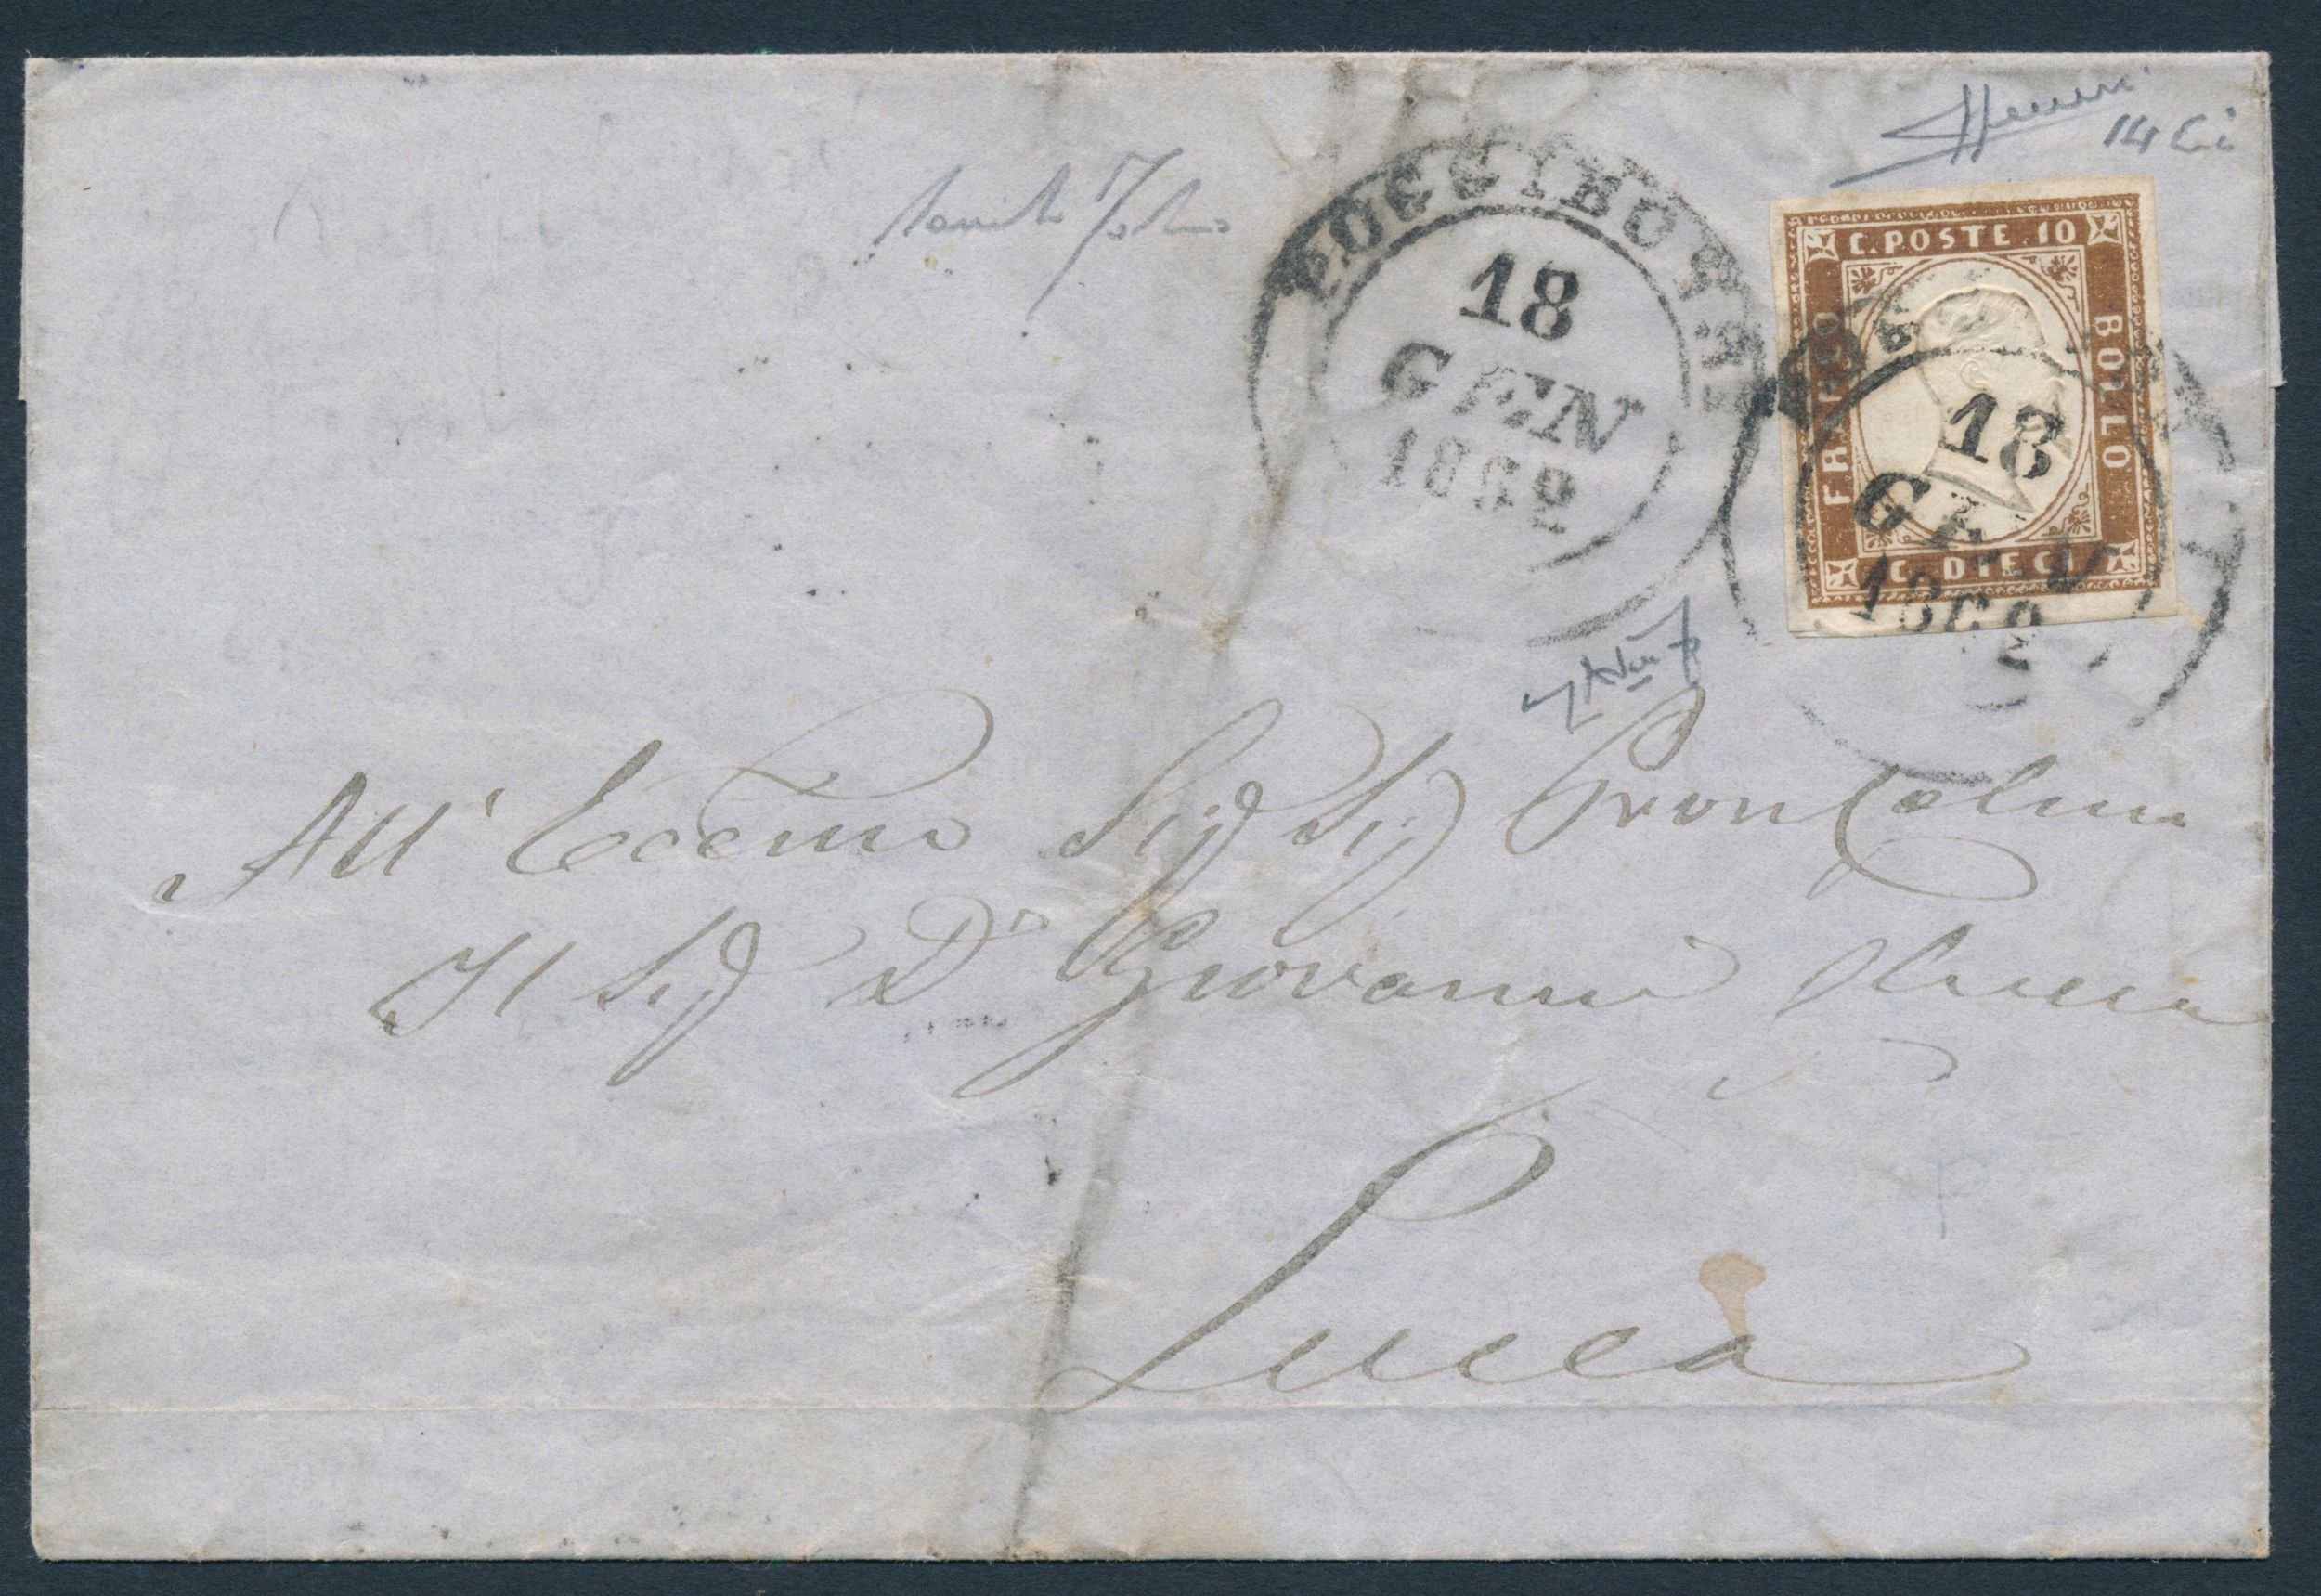 14 Ei
POGGIBONSI
18
GEN
1862
C. POSTE 10
FRANCO
BOLLO
C. DIECI
18
GEN
1862
All' Eccmo Sig Sig Pron Colmo
Il Sig Dr Giovanni
Lucca